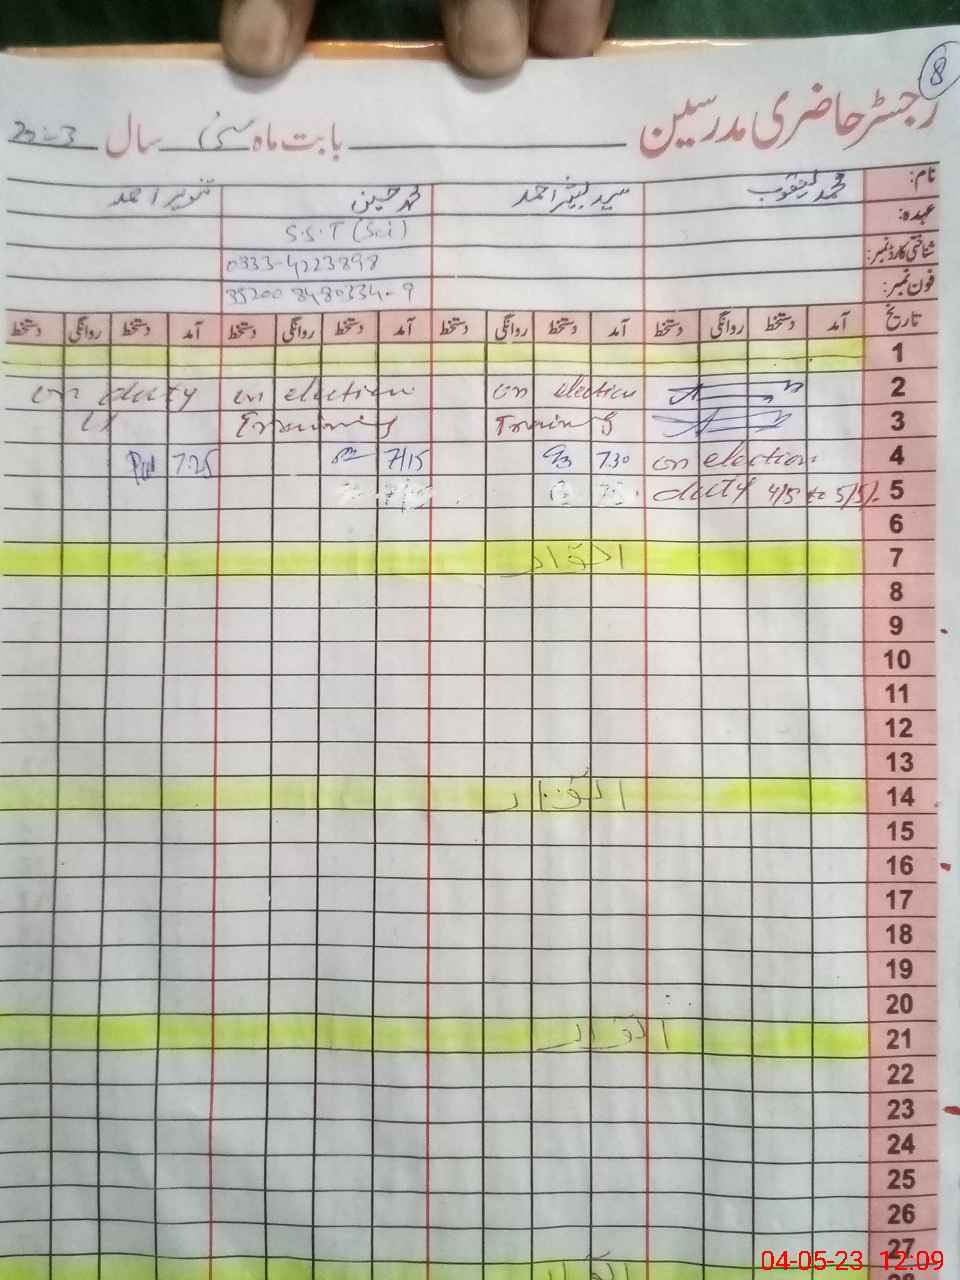 8
رجسٹر حاضری مدرسین بابت ماہ مئی سال 2023
نام: محمد یعقوب سید بشیر احمد محمد حسین تنویر احمد
عہدہ: S.S.T (Sci)
شناختی کارڈ نمبر: 0333-4223898
فون نمبر: 35200 8480334-9
تاریخ آمد دستخط روانگی دستخط آمد دستخط روانگی دستخط آمد دستخط روانگی دستخط آمد دستخط روانگی دستخط
1
on duty on election on election 2
Training Training 3
7:25 7/15 7:30 on election 4
duty 4/5 to 5/5/- 5
6
اتوار 7
8
9
10
11
12
13
اتوار 14
15
16
17
18
19
20
اتوار 21
22
23
24
25
26
27
اتوار
04-05-23 12:09